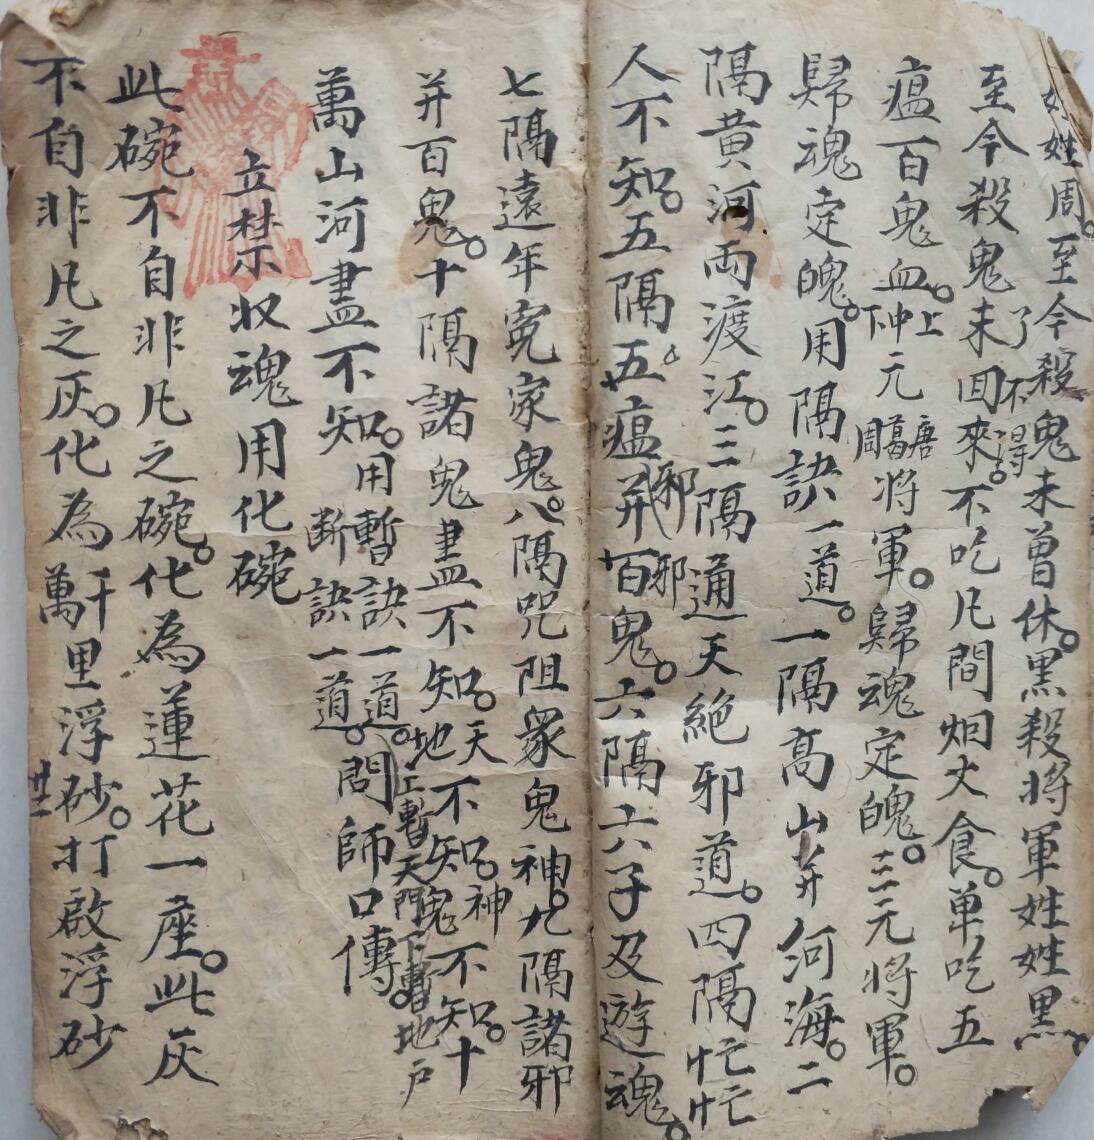 姓姓周。至今殺鬼未曾休。黑殺将軍姓姓黑。
至今殺鬼未了回不來得。不吃凡間烟火食。单吃五
瘟百鬼血。上中下元唐葛周将軍。歸魂定魄。三元将軍。
歸魂定魄。用隔訣一道。一隔高山并何海。二
隔黄河両渡江。三隔通天絶邪道。四隔忙忙
人不知。五隔五瘟并邪百邪鬼。六隔六子及遊魂。
七隔遠年寃家鬼。八隔咒阻衆鬼神。九隔諸邪
并百鬼。十隔諸鬼盡不知。天不知地不知。神不知鬼不知。十
萬山河盡不知。用暫訣一道。断訣一道。問師口傳。
上暫天門下暫地户
立禁收魂用化碗
此碗不自非凡之碗。化為蓮花一座。此灰
不自非凡之灰。化為千萬里浮砂。打啟浮砂